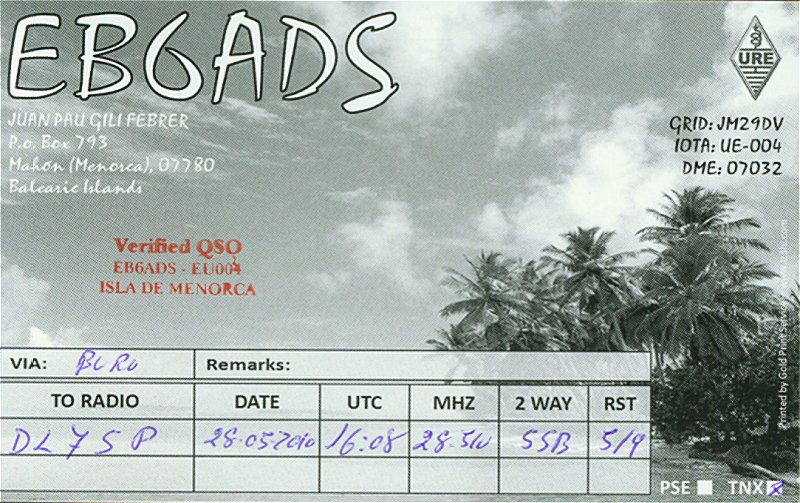 EB6ADS
URE
JUAN PAU GILI FEBRER
P.o. Box 793
Mahón (Menorca), 07780
Balearic Islands
GRID: JM29DV
IOTA: UE-004
DME: 07032
Verified QSO
EB6ADS - EU004
ISLA DE MENORCA
VIA: BURO Remarks:
TO RADIO DATE UTC MHZ 2 WAY RST
DL7SP 28-05-2010 16:08 28-510 SSB 5/9
PSE TNX
Printed by Gold Print Service